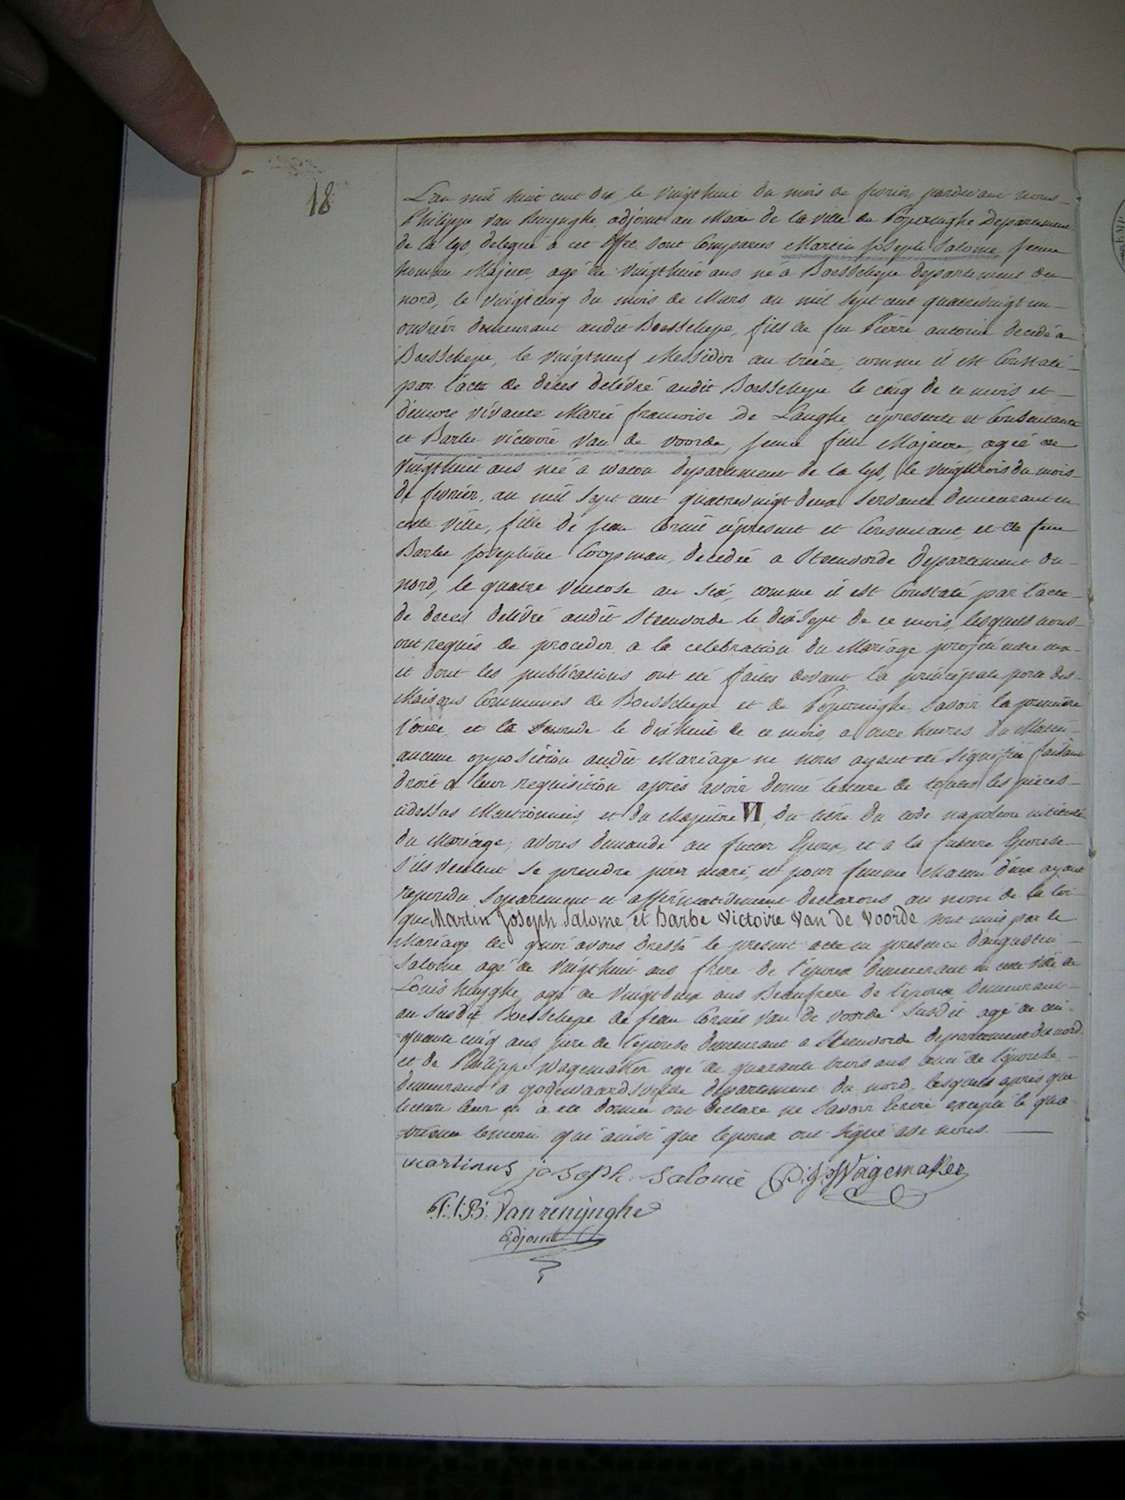 18
L'an mil huit cent dix le vingthuit du mois de fevrier pardevant nous
Philippe Van Renynghe, adjoint au Maire de la ville de Poperinghe Departement
de la Lys, delegué à cet effet sont Comparus Martin Joseph Salome, jeune
homme Majeur, agé de vingthuit ans né à Boeschepe departement du
nord, le vingtcinq du mois de Mars an mil sept cent quatrevingt un
ouvrier demeurant audit Boesschepe, fils de feu Pierre antoine decedé a
Boesschepe, le vingtneuf Messidor an treize, comme il est Constaté
par l'acte de décès délivré audit Boesschepe le cinq de ce mois et
d'encore vivante Marie francoise De Laughe cipresente et Consentante
et Barbe victoire Van de voorde, jeune fille Majeure, agée de
vingthuit ans née à watou departement de la Lys, le vingttrois du mois
de fevrier, an mil sept cent quatrevingt deux servante demeurant en
cette ville, fille de jean Cornil cipresent et Consentant, et de feue
Barbe josephine Coopman, decédée a Steenvorde departement du
nord, le quatre ventose an six, comme il est Constaté par l'acte
de deces delivré audit Steenvorde le dixsept de ce mois, lesquels nous
ont requis de proceder a la celebration du Mariage projetté entre eux
et dont les publications ont été faites devant la principale porte des
Maisons Communes de Boesschepe et de Poperinghe, Savoir la premiere
l'onze, et la Seconde le dixhuit de ce mois, a onze heures du Matin
aucune opposition audit Mariage ne nous ayant été signifiée faisant
droit a leur requisition après avoir donné lecture de toutes les pieces
cidessus Mentionnées, et du chapitre VI, du titre du code napoleon intitulé
du Mariage, avons demandé au futur Epoux, et a la future Epouse
s'ils veulent se prendre pour mari, et pour femme chacun d'eux ayant
repondu Separement et affirmativement declarons au nom de la loi
que Martin Joseph Salome et Barbe Victoire Van de Voorde sont unis par le
Mariage, de quoi avons dressé le present acte en presence d'augustin
Salome agé de vingthuit ans frere de l'époux demeurant en cette ville de
Louis huyghe, agé de vingtdeux ans Beaufrere de l'époux demeurant
au susdit Boesschepe de Jean Cornil Van de voorde susdit agé de cin-
quante cinq ans, pere de l'épouse demeurant a Steenvorde departement du nord
et de Philippe Wagemaker agé de quarante trois ans ami de l'épouse
demeurant a godewaersvelde departement du nord, lesquels après que
lecture leur en a été donnée ont declaré ne savoir Ecrire excepté le qua-
trieme temoin qui ainsi que l'epoux ont signé avec nous.
martinus joseph Salomé P:J: Wagemaker
P:J:B: Van renynghe
Adjoint